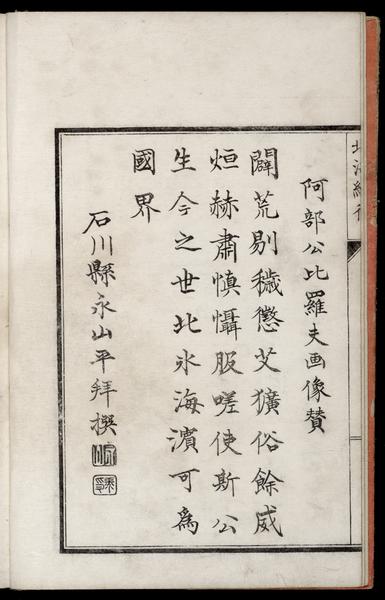 阿部公比羅夫画像賛
闢荒剔穢懲艾獷俗餘威
烜赫肅慎懾服嗟使斯公
生今之世北氷海濱可為
國界
石川縣永山平拜撰